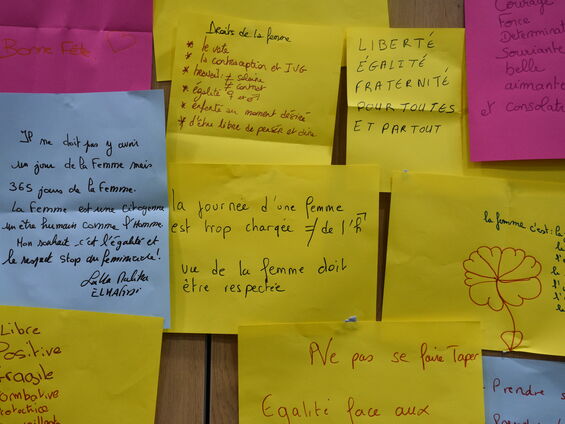 Bonne Fête
Droits de la femme
* le vote
* la contraception et IVG
* travail ≠ salaire
≠ contrat
* égalité ♀ et ♂
* enfants au moment désiré
* d'être libre de pensée et dire
LIBERTÉ
ÉGALITÉ
FRATERNITÉ
POUR TOUTES
ET PARTOUT
Courage
Force
Determination
Souriante
belle
aimante
et consolat
Il ne doit pas y avoir
un jour de la Femme mais
365 jours de la Femme.
La Femme est une citoyenne
un être humain comme l'Homme.
Mon souhait, c'est l'égalité et
le respect stop au féminicide!
ELMAHDI
la journée d'une femme
est trop chargée ≠ de l'h
vue de la femme doit
être respectée
la femme c'est: la
Libre
Positive
Fragile
Combative
Protectrice
Ne pas se faire Taper
Egalité face aux
Prendre s